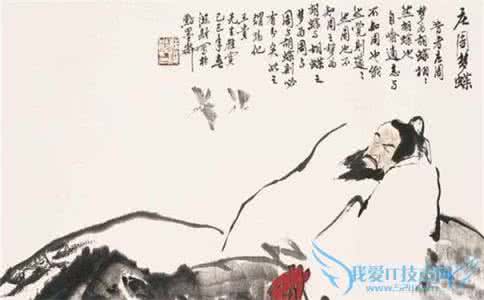 庄周梦蝶
昔者庄周
梦为胡蝶栩栩
然胡蝶也
自喻適志与
不知周也俄
然觉则
然周也不
知周之梦为
胡蝶与胡蝶之
梦为周与
周与胡蝶则必
有分矣此之
谓物化
先生雅賞
己巳年春
我爱IT技术网